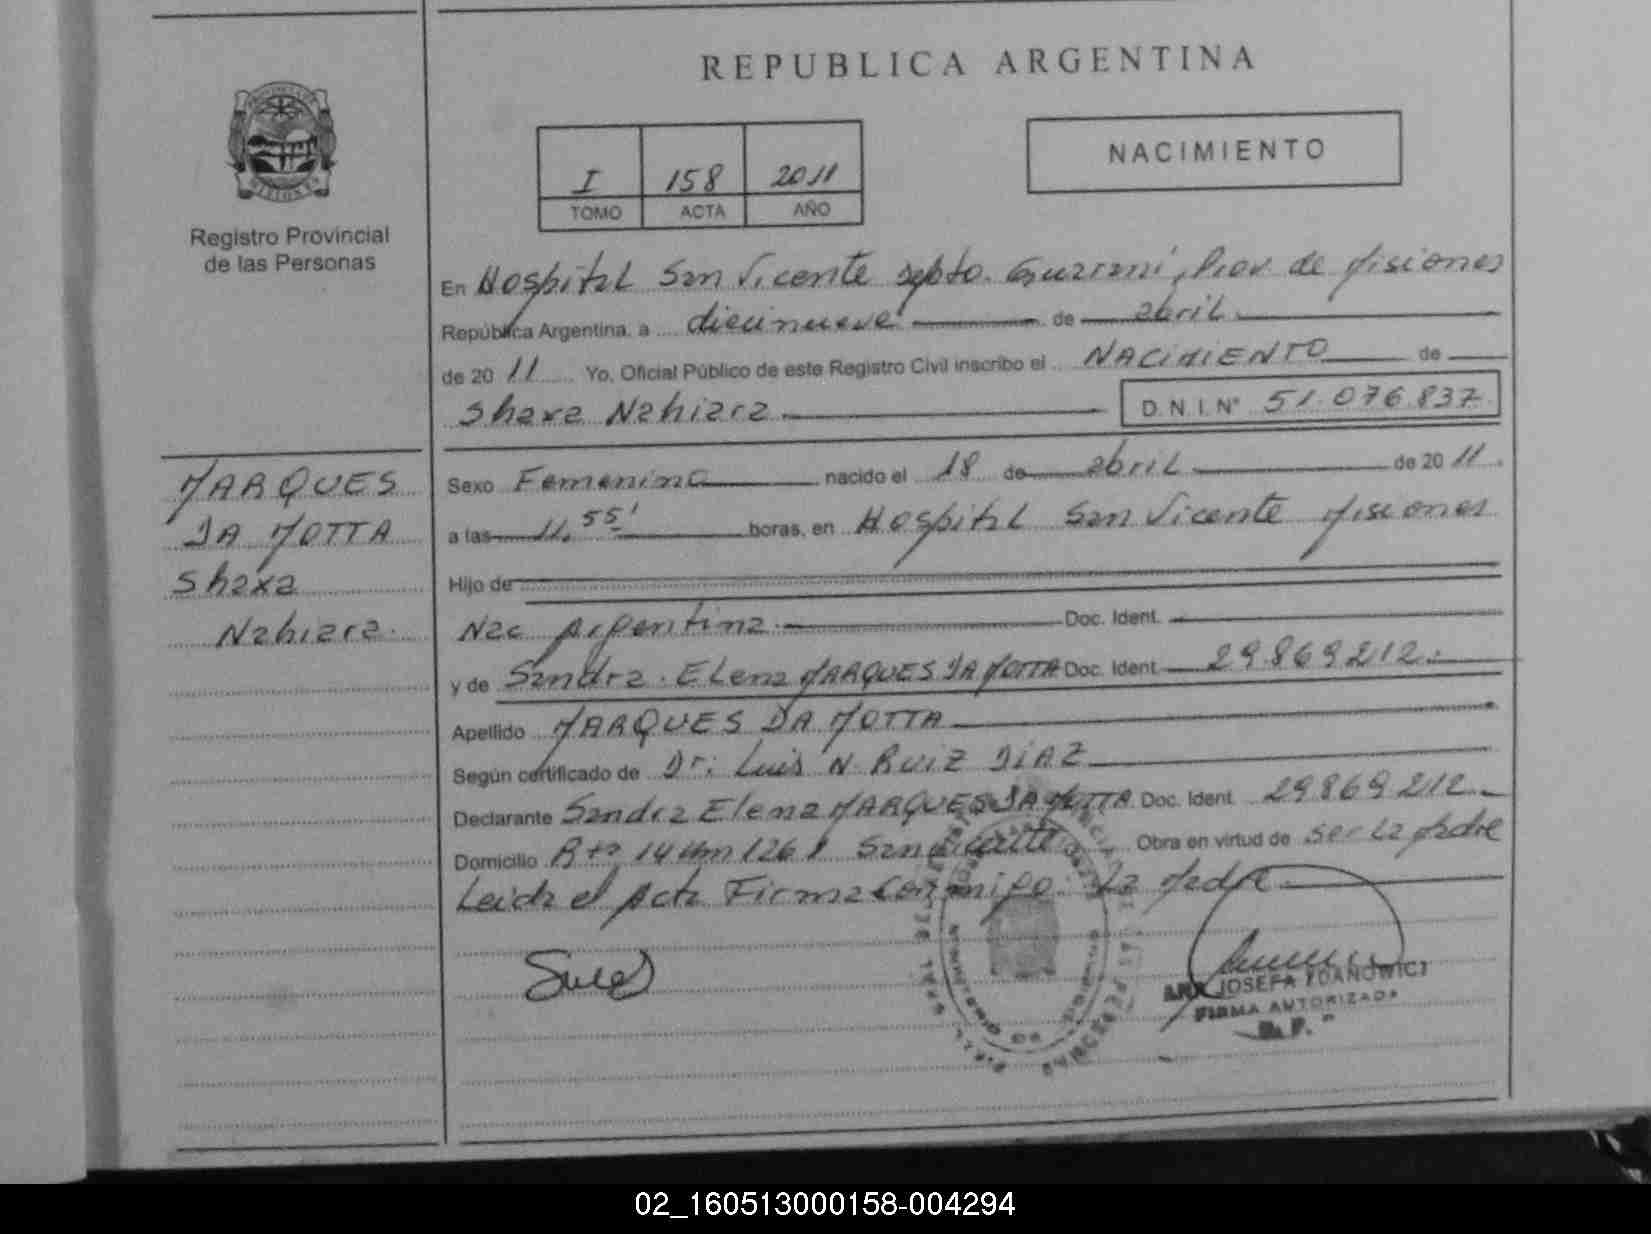 REPUBLICA ARGENTINA
I 158 2011
TOMO ACTA AÑO
NACIMIENTO
Registro Provincial
de las Personas
En Hospital San Vicente Depto. Guaraní, Prov. de Misiones
República Argentina, a diecinueve de abril
de 2011 Yo, Oficial Público de este Registro Civil inscribo el NACIMIENTO de
Shaxa Nahiara D.N.I. Nº 51.076.837
MARQUES
DA MOTTA
Shaxa
Nahiara.
Sexo Femenino nacido el 18 de abril de 2011.
a las 11,55' horas, en Hospital San Vicente Misiones
Hijo de
Nac Argentina. Doc. Ident.
y de Sandra Elena MARQUES DA MOTTA Doc. Ident. 29869212.
Apellido MARQUES DA MOTTA
Según certificado de Dr. Luis N. RUIZ DIAZ
Declarante Sandra Elena MARQUES DA MOTTA Doc. Ident. 29869212.
Domicilio Rta 14 Km 1261 San Vicente Obra en virtud de ser la Madre
Leida el Acta Firma Conmigo La Madre.
JOSEFA ZDANOWICZ
FIRMA AUTORIZADA
02_160513000158-004294